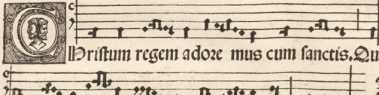 CHristum regem adore mus cum sanctis, Qu